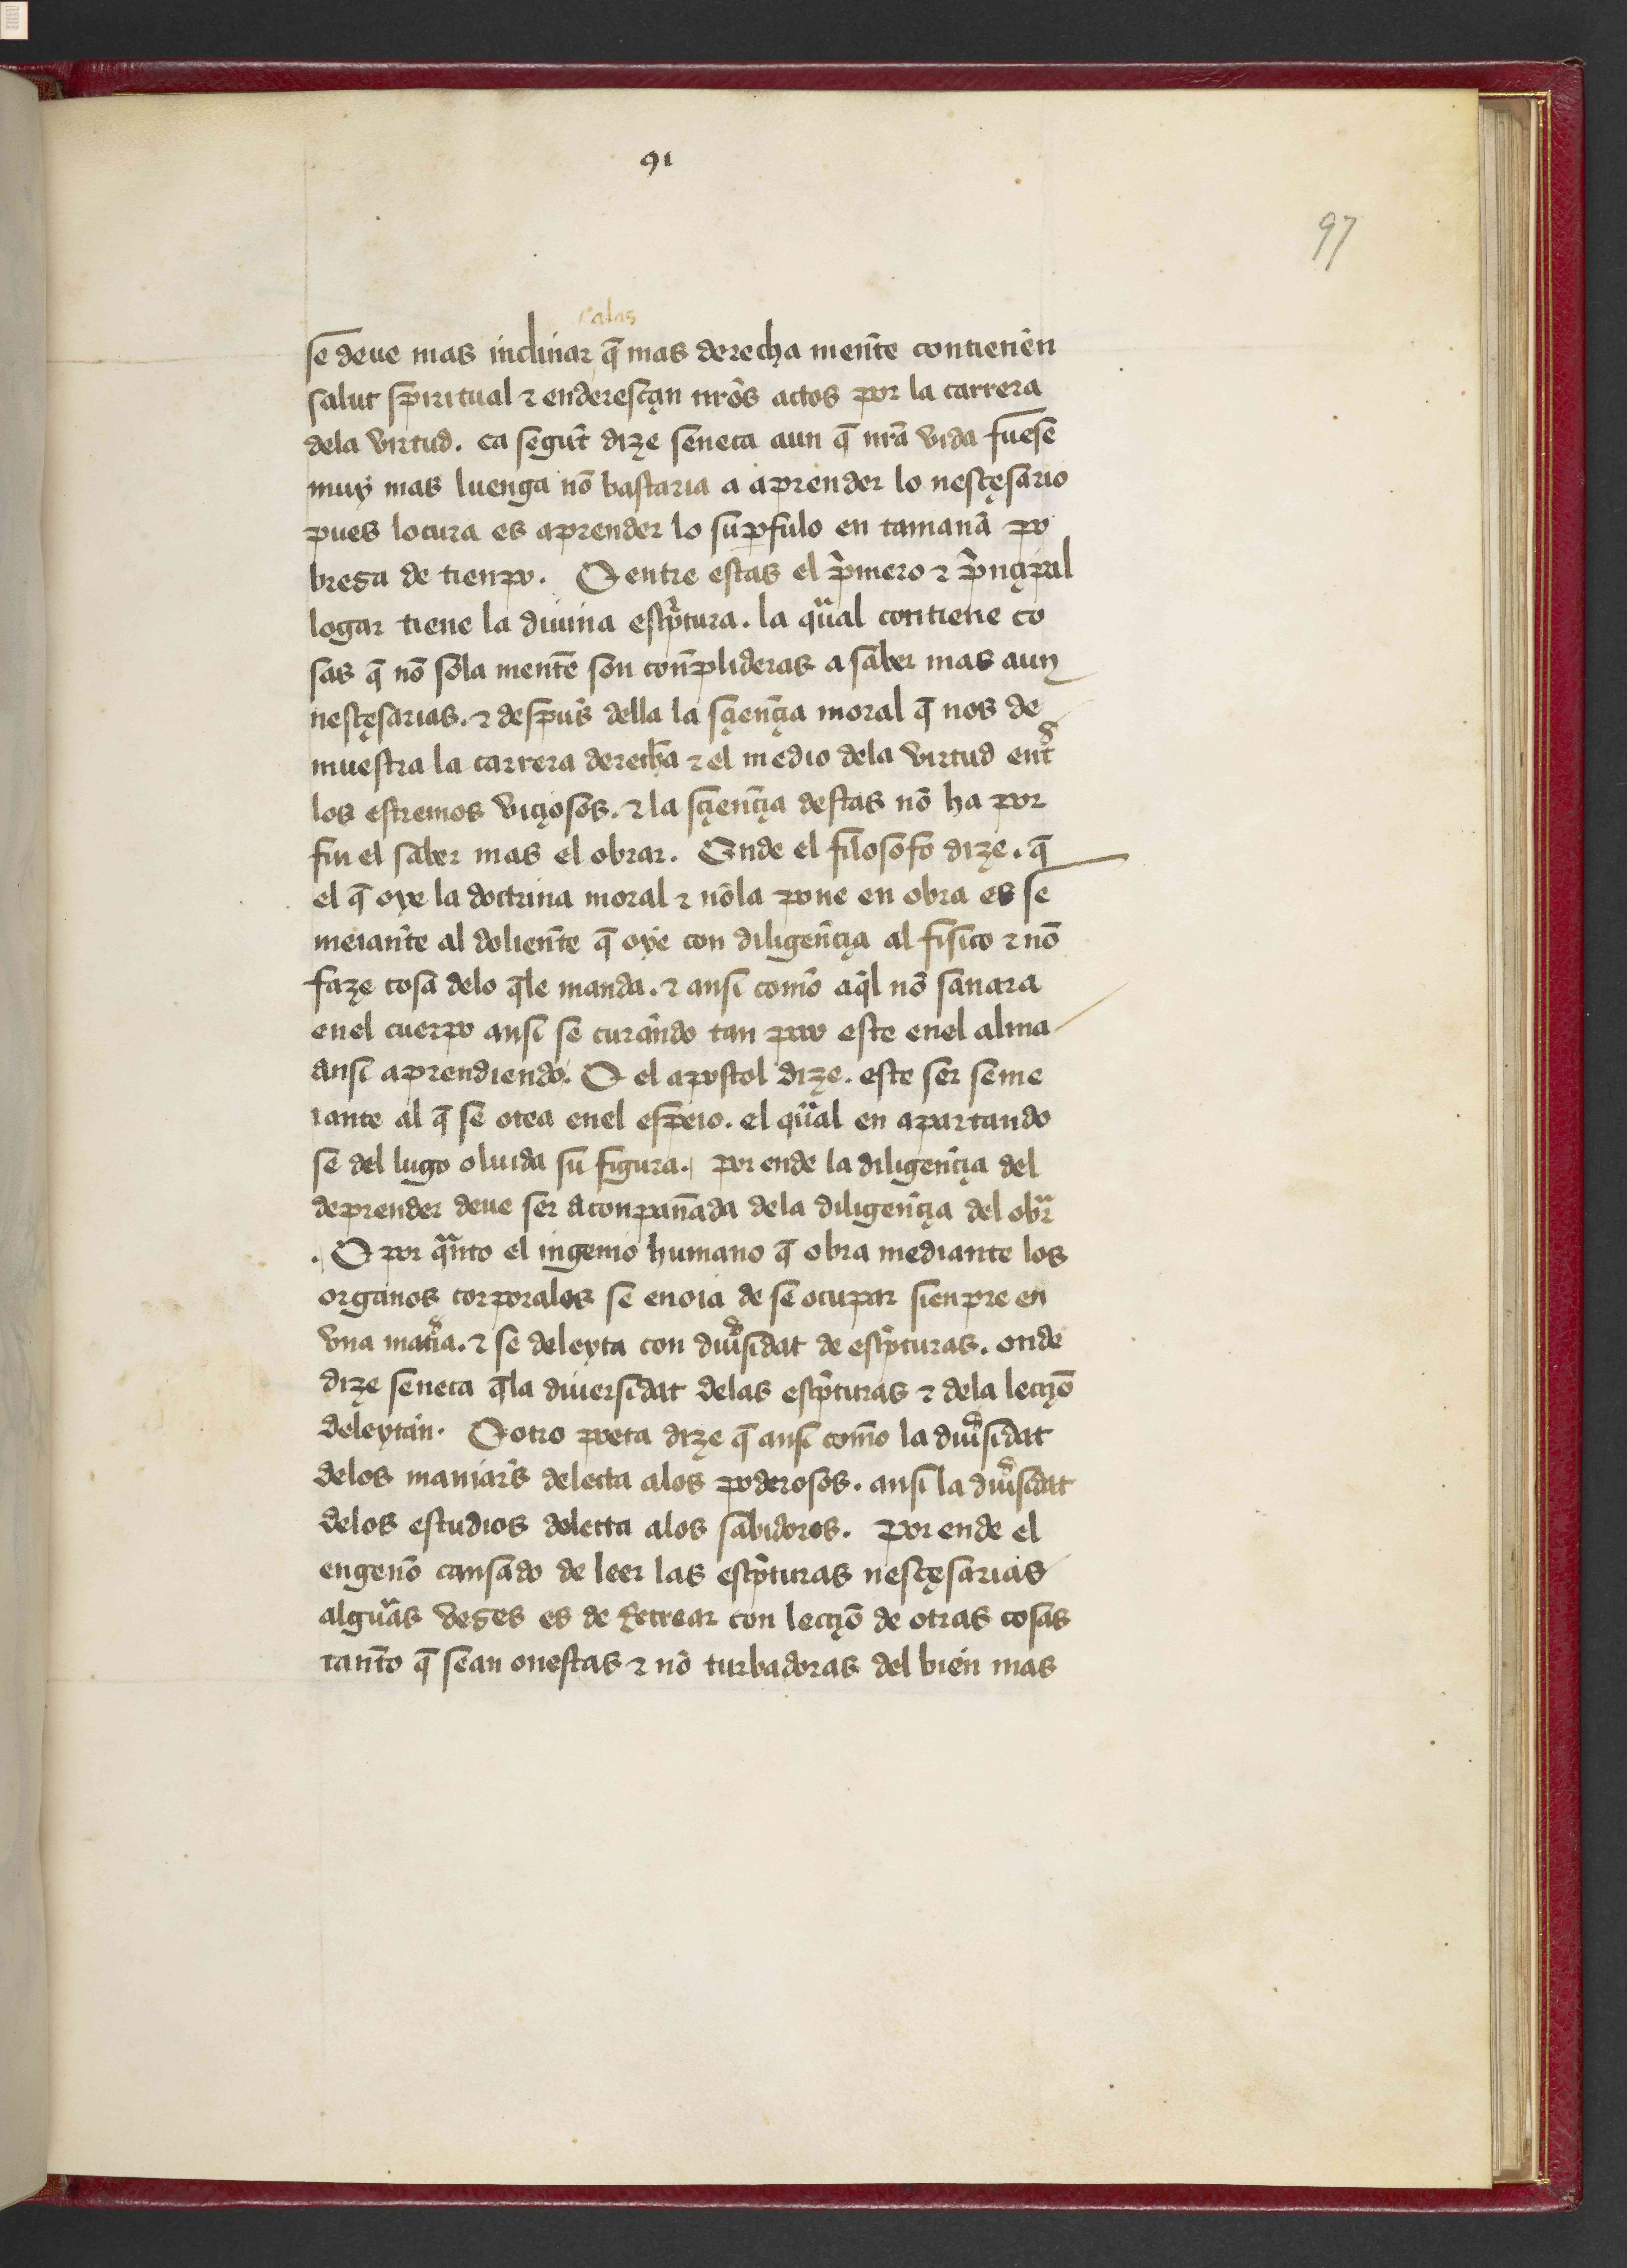 91
97
alas
se deue mas inclinar q̄ mas derecha men̄te contienēn
salut spiritual ⁊ enderesçan nr̄os actos por la carrera
dela virtud. ca segun̄t dize seneca aun q̄ nr̄a vida fuese
muy mas luenga nō bastaria a aprender lo nesçesario
pues locura es aprender lo sup̄fulo en tamanā po
breza de tienpo. E entre estas el p̄mero ⁊ p̄nçipal
logar tiene la diuina esc̄ptura. la qual contiene co
sas q̄ nō sola men̄te son con̄plideras a saber mas aun
nesçesarias. ⁊ despus̄ della la sçien̄çia moral q̄ nos de
muestra la carrera derecha ⁊ el medio dela virtud ent̄
los estremos viçiosos. ⁊ la sçien̄çia destas nō ha por
fin el saber mas el obrar. Onde el filosofo dize. q̄
el q̄ oye la doctrina moral ⁊ nōla pone en obra es se
meian̄te al dolien̄te q̄ oye con diligen̄çia al fisico ⁊ nō
faze cosa delo q̄le manda. ⁊ ansi como aq̄l nō sanara
enel cuerpo ansi se curando tan poco este enel alma
ansi aprendiendo. E el apostol dize. este ser seme
iante al q̄ se otea enel espeio. el qual en apartando
se del lugo oluida su figura. por ende la diligen̄çia del
deprender deue ser aconpan̄ada dela diligen̄çia del obr̄
. E por quanto el ingenio humano q̄ obra mediante los
organos corporales se enoia de se ocupar sienpre en
vna mat̄ia. ⁊ se deleyta con diūsidat de esc̄pturas. onde
dize seneca q̄la diuersidat delas esc̄pturas ⁊ dela lecçiō
deleytan. E otro poeta dize q̄ ansi como la diūsidat
delos maniar̄s delecta alos poderosos. ansi la diūsidat
delos estudios delecta alos sabidores. por ende el
engenō cansado de leer las esc̄pturas nesçesarias
algūas vezes es de recrear con lecçiō de otras cosas
tan̄to q̄ sean onestas ⁊ nō turbadoras del bien mas